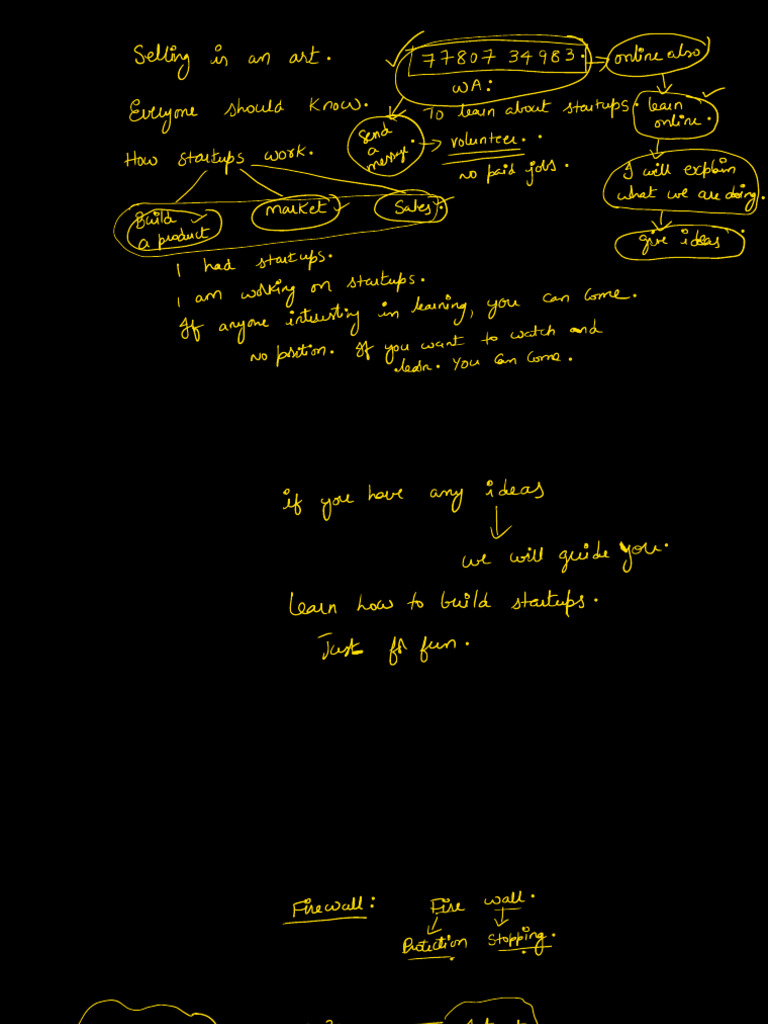 Selling is an art.
77807 34983.
online also
WA:
Everyone should know.
To learn about startups.
learn
online.
Send
a
message.
volunteer.
no paid jobs.
How startups work.
I will explain
what we are doing.
Build
a product
market
Sales.
give ideas
I had startups.
I am working on startups.
If anyone interesting in learning, you can come.
No position. If you want to watch and
learn. You can come.
if you have any ideas
we will guide you.
learn how to build startups.
Just for fun.
Firewall: Fire wall.
Protection Stopping.